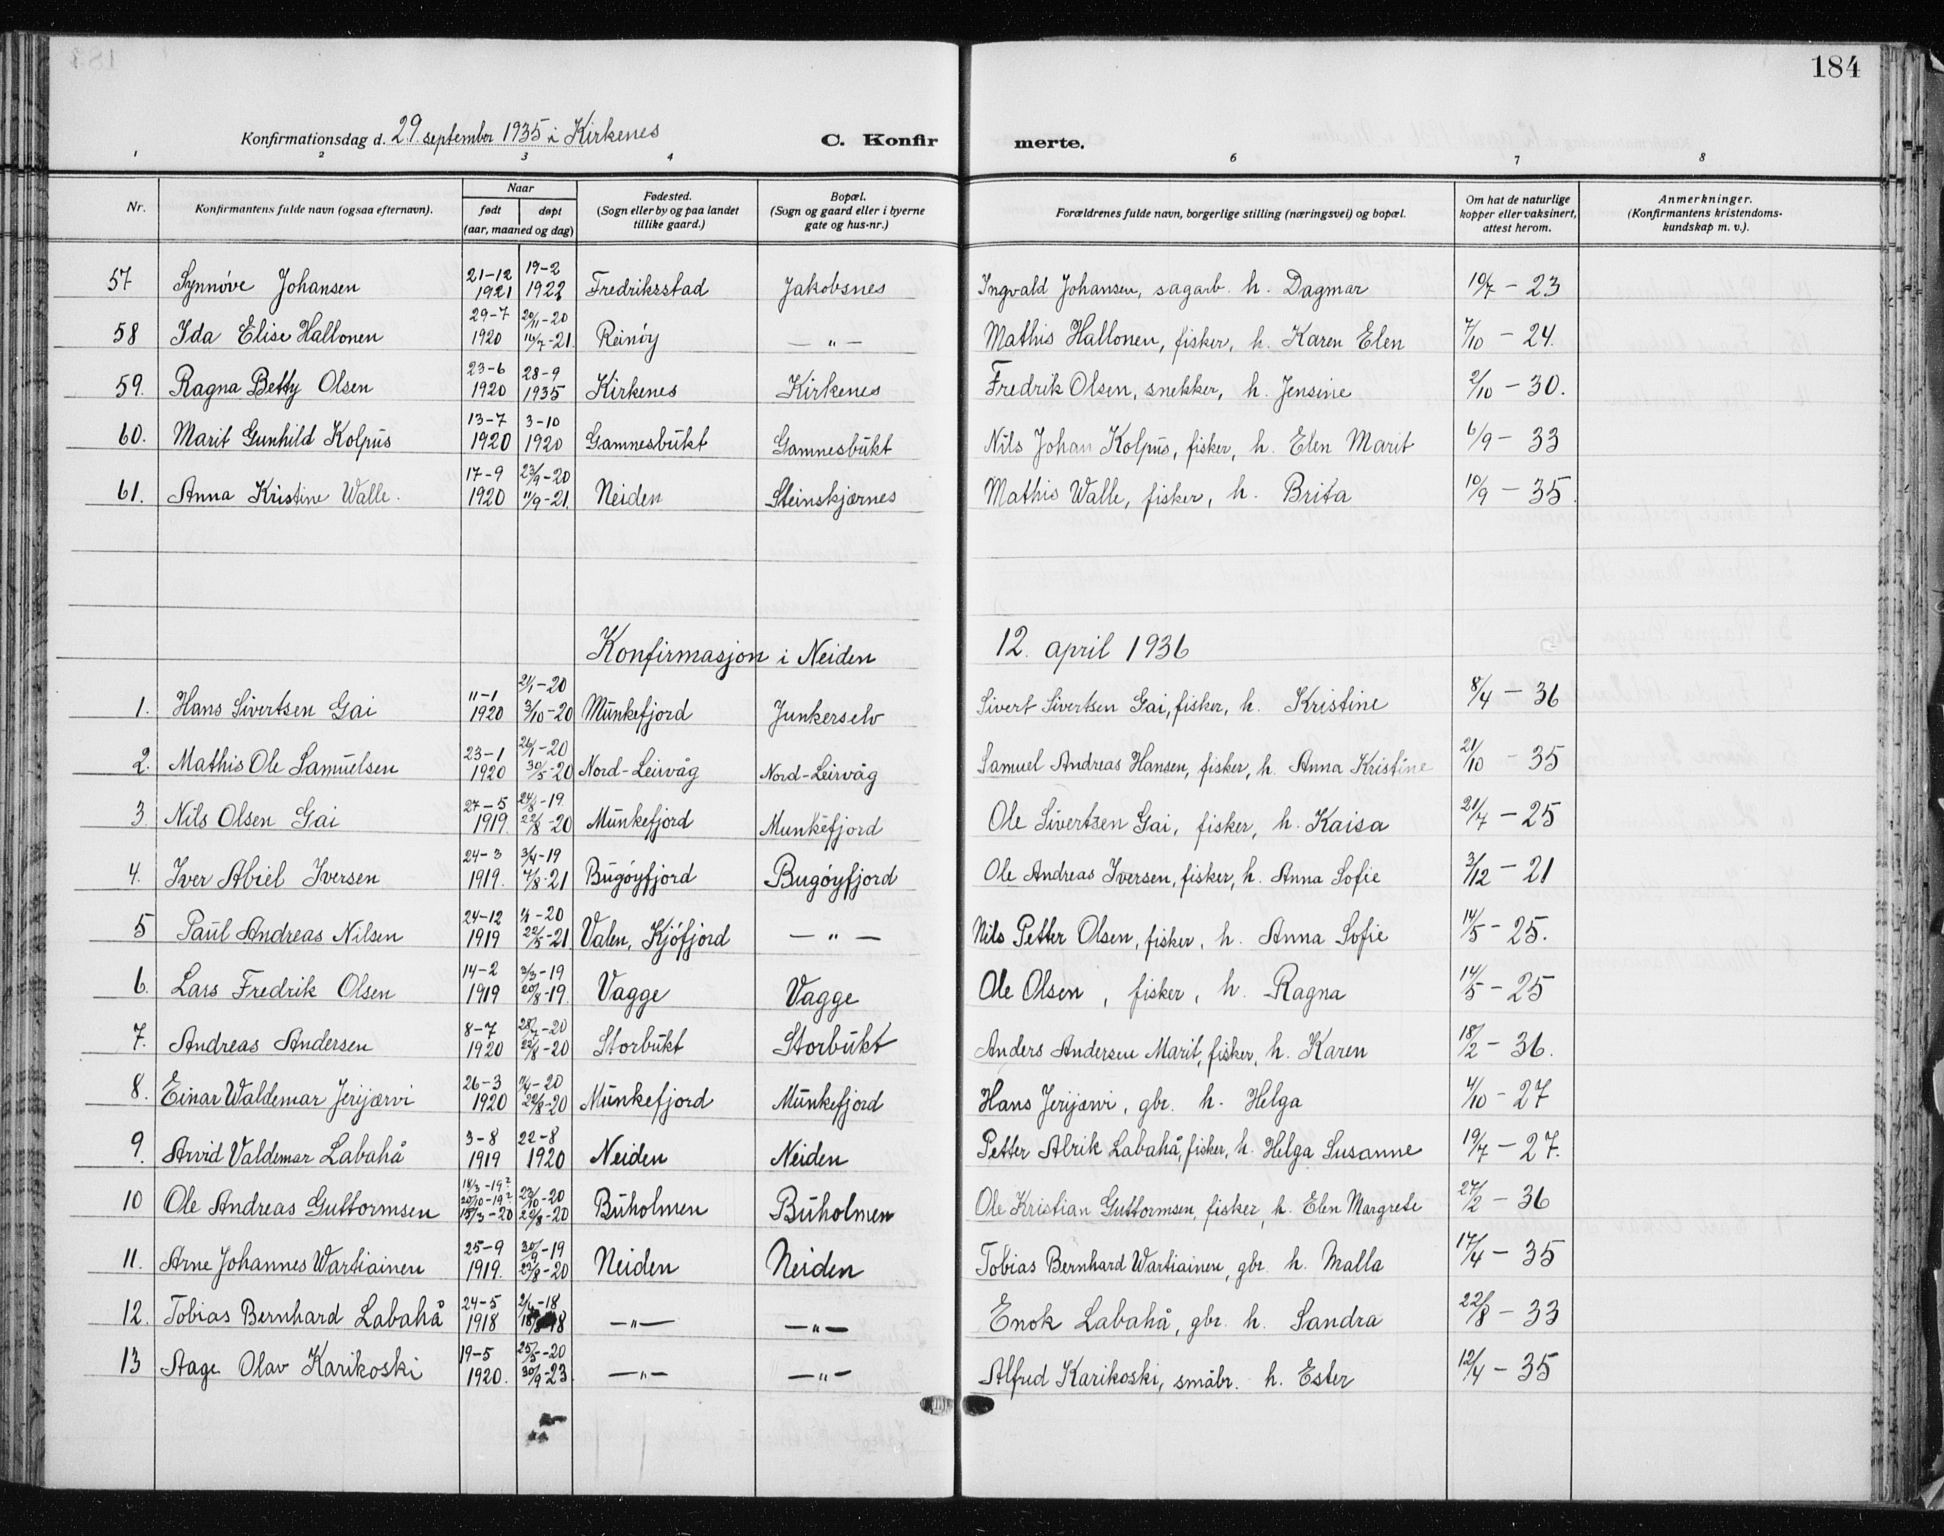 184
Konfirmationsdag d. 29 september 1935 i Kirkenes C. Konfirmerte.
1 2 3 4 6 7 8
Nr. Konfirmantens fulde navn (ogsaa efternavn). Naar født døpt (aar, maaned og dag) Fødested. (Sogn eller by og paa landet tillike gaard.) Bopæl. (Sogn og gaard eller i byerne gate og hus-nr.) Forældrenes fulde navn, borgerlige stilling (næringsvei) og bopæl. Om hat de naturlige kopper eller vaksinert, attest herom. Anmerkninger. (Konfirmantens kristendoms-kundskap m. v.).
57 Synnøve Johansen 21-12 1921 19-2 1922 Fredrikstad Jakobsnes Ingvald Johansen, sagarb. h. Dagmar 10/7 - 23
58 Ida Elise Hallonen 29-7 1920 20/11-20 16/7-21. Reinøy — " — Mathis Hallonen, fisker, h. Karen Elen 7/10 - 24.
59. Ragna Betty Olsen 23-6 1920 28-9 1935 Kirkenes Kirkenes Fredrik Olsen, snekker, h. Jensine 2/10 - 30.
60. Marit Gunhild Kolpus 13-7 1920 3-10 1920 Gamnesbukt Gamnesbukt Nils Johan Kolpus, fisker, h. Elen Marit 6/9 - 33
61. Anna Kristine Walle. 17-9 1920 23/9-20 11/9-21. Neiden Steinskjærnes Mathis Walle, fisker, h. Brita 10/9 - 35.
Konfirmasjon i Neiden 12. april 1936
1. Hans Sivertsen Gai 11-1 1920 21/1-20 3/10-20 Munkefjord Junkerselv Sivert Sivertsen Gai, fisker, h. Kristine 8/4 - 36
2. Mathis Ole Samuelsen 23-1 1920 26/1-20 30/5-20 Nord-Leirvåg Nord-Leirvåg Samuel Andreas Hansen, fisker, h. Anna Kristine 21/10 - 35
3. Nils Olsen Gai 27-5 1919. 24/8-19. 22/8-20 Munkefjord Munkefjord Ole Sivertsen Gai, fisker, h. Kaisa 21/7 - 25
4. Iver Abiel Iversen 24-3 1919. 3/4-19 7/8-21 Bugøyfjord Bugøyfjord Ole Andreas Iversen, fisker, h. Anna Sofie 3/12 - 21
5 Paul Andreas Nilsen 24-12 1919 -20 22/5-21 Valen, Kjøfjord — " — Nils Petter Olsen, fisker, h. Anna Sofie 14/5 - 25.
6. Lars Fredrik Olsen 14-2 1919 3/3-19 20/8-19. Vagge Vagge Ole Olsen, fisker, h. Ragna 14/5 - 25
7. Andreas Andersen 8-7 1920 28/7-20 22/8-20 Storbukt Storbukt Anders Andersen Marit, fisker, h. Karen 18/2 - 36.
8. Einar Waldemar Jerijærvi 26-3 1920 -20 22/8-20 Munkefjord Munkefjord Hans Jerijærvi, gbr. h. Helga 4/10 - 27
9. Arvid Valdemar Labahå 3-8 1919 22-8 1920 Neiden Neiden Petter Alrik Labahå, fisker, h. Helga Susanne 19/7 - 27.
10 Ole Andreas Guttormsen 14/3-19? 20/10-19? 15/3-20 23/10-20 22/8-20 Buholmen Buholmen Ole Kristian Guttormsen, fisker, h. Elen Margrete 27/2 - 36
11. Arne Johannes Wartiainen 25-9 1919. 30/9-19 22/8-20 Neiden Neiden Tobias Bernhard Wartiainen, gbr. h. Malla 17/4 - 35
12. Tobias Bernhard Labahå 24-5 1918 2/6-18 — " — — " — Enok Labahå, gbr. h. Sandra 22/8 - 33
13 Aage Olav Karikoski 19-5 1920. 25/5-20 30/9-23. — " — — " — Alfred Karikoski, småbr. h. Ester 12/4 - 35